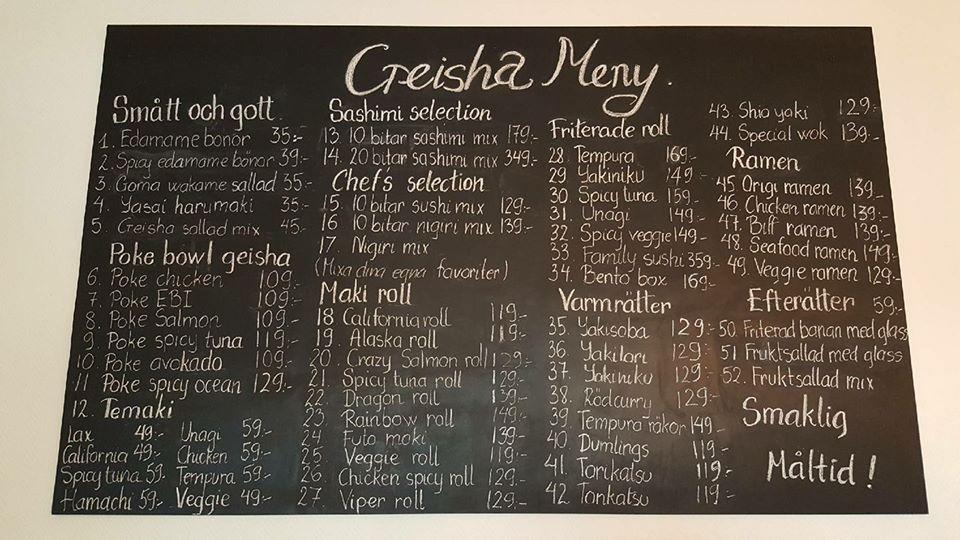 Geisha Meny.
Smått och gott.
1. Edamame bönor 35:-
2. Spicy edamame bönor 39:-
3. Goma wakame sallad 35:-
4. Yasai harumaki 35:-
5. Geisha sallad mix 45:-
Poke bowl geisha
6. Poke chicken 109:-
7. Poke EBI 109:-
8. Poke Salmon 109:-
9. Poke spicy tuna 119:-
10. Poke avokado 109:-
11 Poke spicy ocean 129:-
12. Temaki
Lax 49:- Unagi 59:-
California 49:- Chicken 59:-
Spicy tuna 59:- Tempura 59:-
Hamachi 59:- Veggie 49:-
Sashimi selection
13. 10 bitar sashimi mix 179:-
14. 20 bitar sashimi mix 349:-
Chef's selection
15. 10 bitar sushi mix 129:-
16 10 bitar nigiri mix 139:-
17. Nigiri mix
(Mixa dina egna favoriter)
Maki roll
18 California roll 119:-
19. Alaska roll 119:-
20. Crazy Salmon roll 129:-
21. Spicy tuna roll 129:-
22. Dragon roll 139:-
23. Rainbow roll 149:-
24 Futo maki 139:-
25 Veggie roll 119:-
26. Chicken spicy roll 129:-
27. Viper roll 129:-
Friterade roll
28. Tempura 169:-
29 Yakiniku 149:-
30. Spicy tuna 159:-
31. Unagi 149:-
32. Spicy veggie 149:-
33. Family sushi 359:-
34. Bento box 169:-
Varmrätter
35. Yakisoba 129:-
36. Yakitori 129:-
37. Yakiniku 129:-
38. Rödcurry 129:-
39. Tempura räkor 149:-
40. Dumlings 119:-
41. Torikatsu 119:-
42 Tonkatsu 119:-
43. Shio yaki 129:-
44. Special wok 139:-
Ramen
45 Origi ramen 139:-
46. Chicken ramen 139:-
47. Biff ramen 139:-
48. Seafood ramen 149:-
49. Veggie ramen 129:-
Efterätter 59:-
50 Friterad banan med glass
51 Fruktsallad med glass
52. Fruktsallad mix
Smaklig
Måltid!